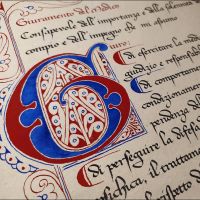 Giuramento del medico
Consapevole dell' importanza e della solennità
compio e dell' impegno che mi assumo
giuro:
di esercitare la medi
giudizio e
di comportamento
condizionamen
pendenza
di perseguire la difesa
psichica, il trattamen
rispetto de